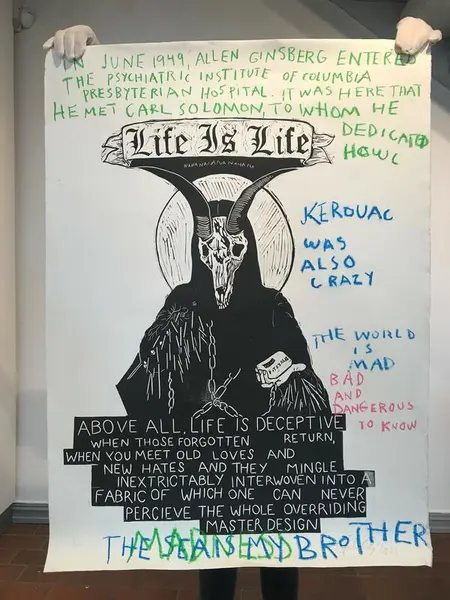 IN JUNE 1949, ALLEN GINSBERG ENTERED
THE PSYCHIATRIC INSTITUTE OF COLUMBIA
PRESBYTERIAN HOSPITAL. IT WAS HERE THAT
HE MET CARL SOLOMON, TO WHOM HE
DEDICATED
HOWL
Life Is Life
KEROUAC
WAS
ALSO
CRAZY
THE WORLD
IS
MAD
BAD
AND
DANGEROUS
TO KNOW
ABOVE ALL, LIFE IS DECEPTIVE
WHEN THOSE FORGOTTEN RETURN,
WHEN YOU MEET OLD LOVES AND
NEW HATES AND THEY MINGLE
INEXTRICTABLY INTERWOVEN INTO A
FABRIC OF WHICH ONE CAN NEVER
PERCIEVE THE WHOLE OVERRIDING
MASTER DESIGN
THE SEA IS MY BROTHER